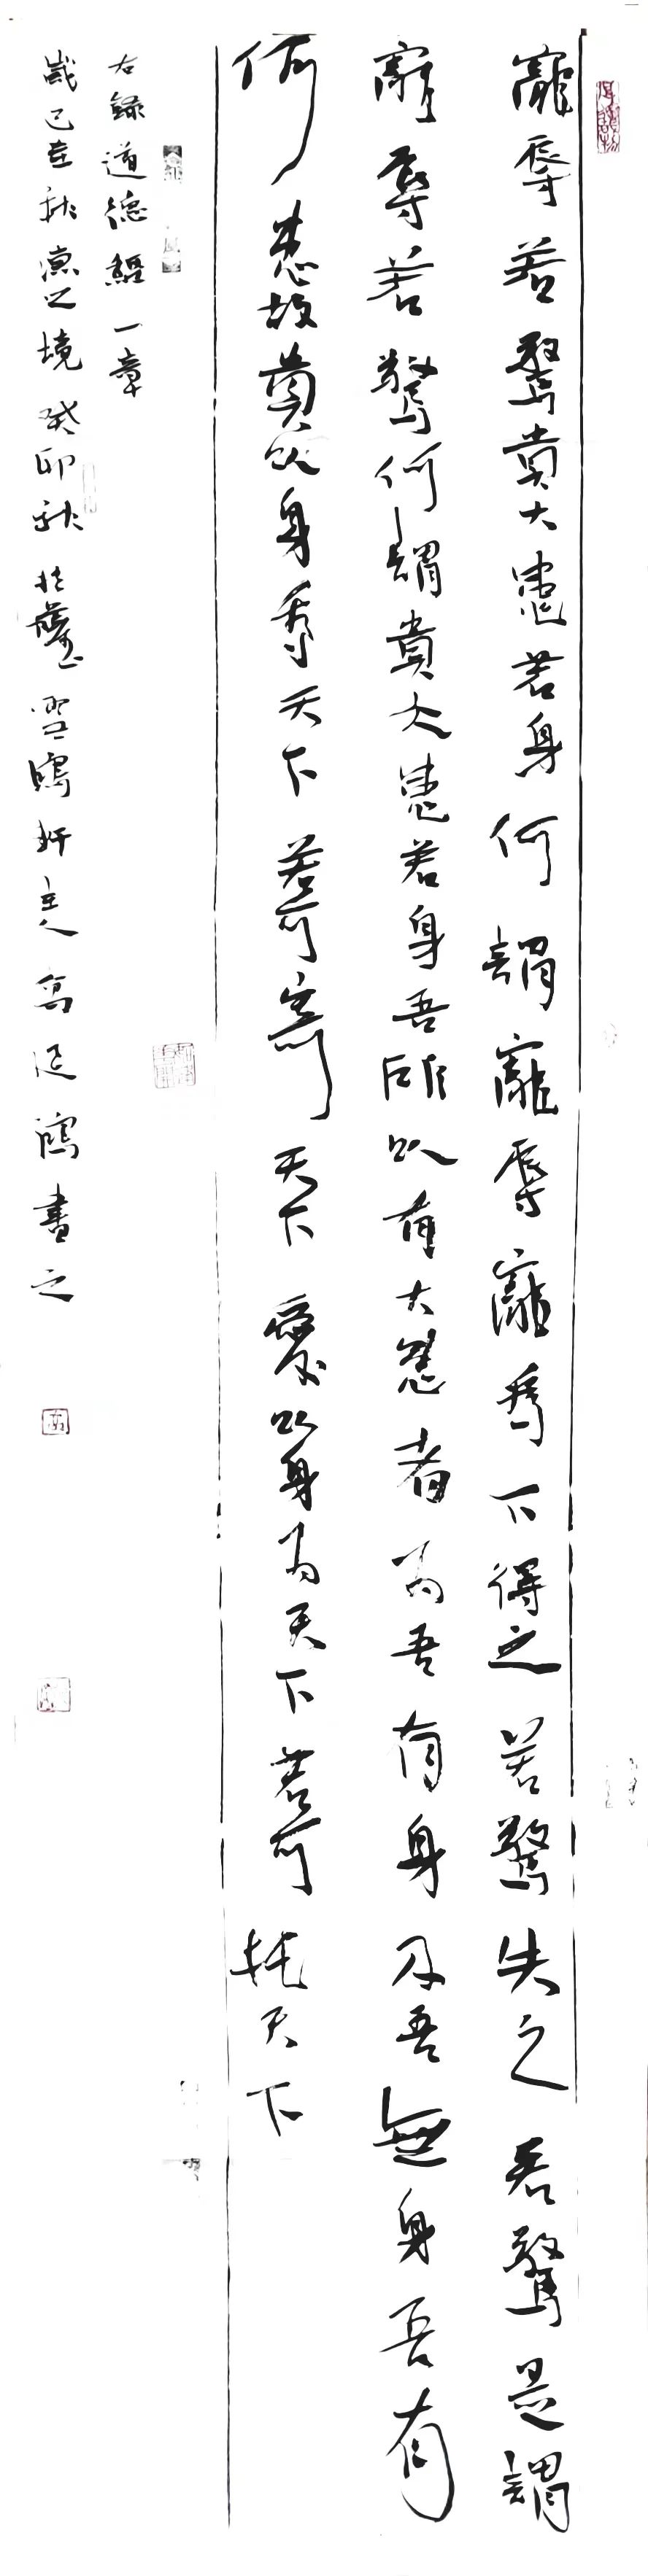 寵辱若驚貴大患若身何謂寵辱寵為下得之若驚失之若驚是謂
寵辱若驚何謂貴大患若身吾所以有大患者為吾有身及吾無身吾有
何患故貴以身為天下若可寄天下愛以身為天下若可托天下
右錄道德經一章
歲已在秋 之境癸卯秋於 雪鴻軒主人高廷鴻書之